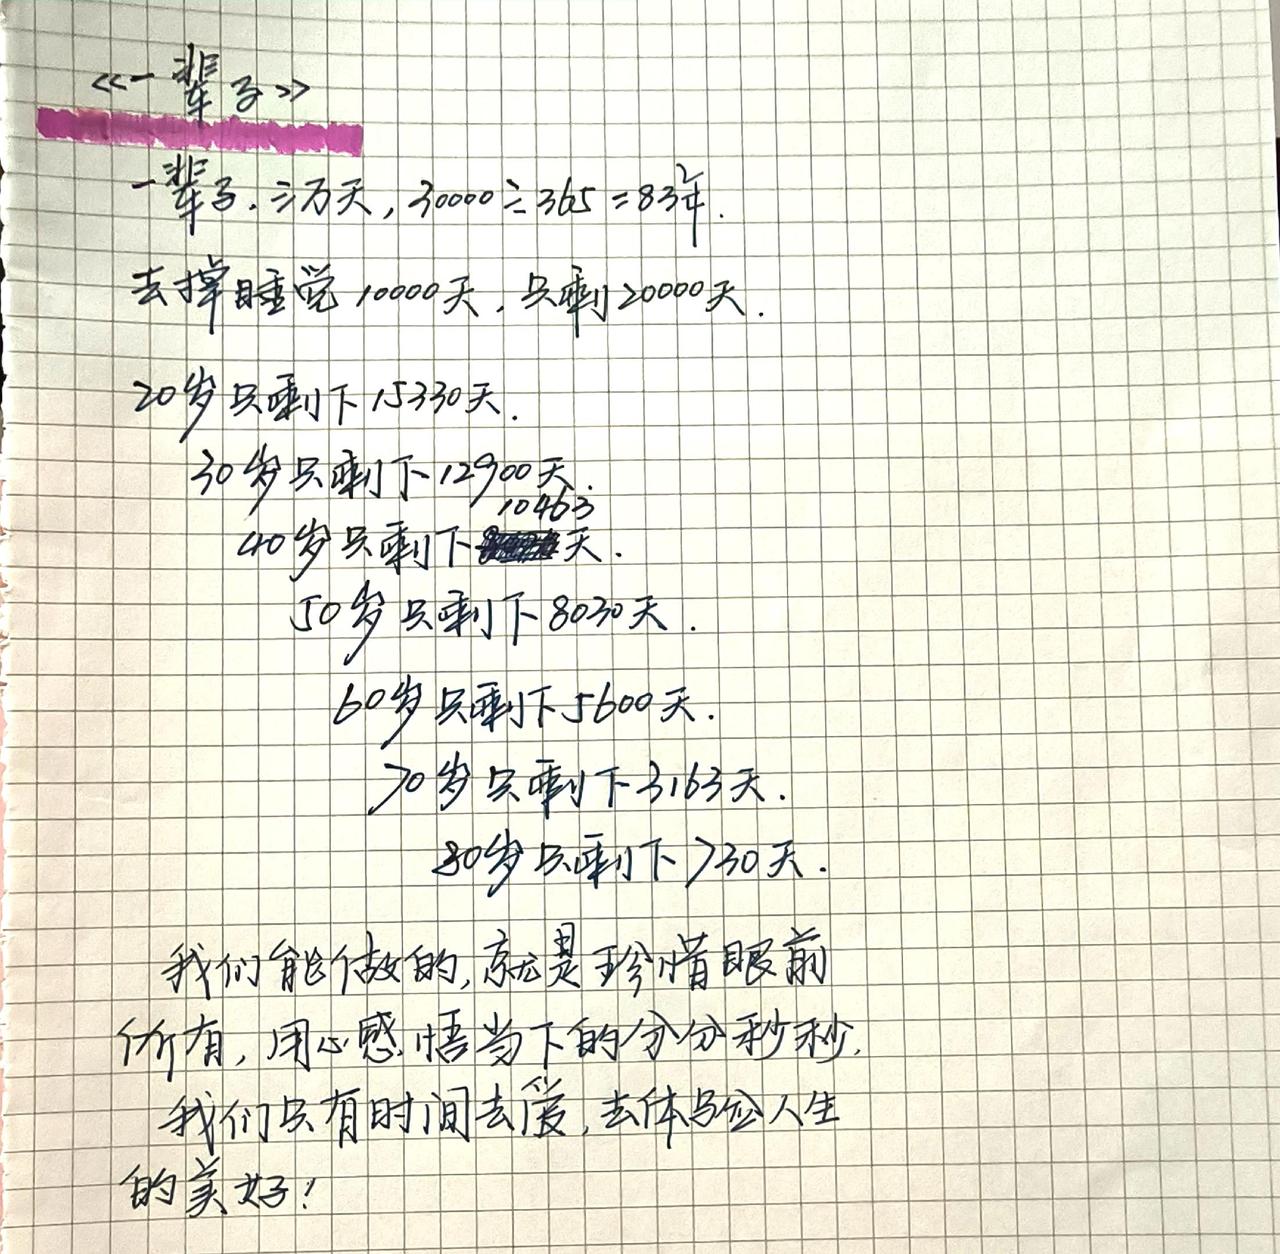 《一辈子》
一辈子.三万天,30000÷365=83年.
去掉睡觉10000天,只剩20000天.
20岁只剩下15330天.
30岁只剩下12900天.
10463
40岁只剩下天.
50岁只剩下8030天.
60岁只剩下5600天.
70岁只剩下3163天.
80岁只剩下730天.
我们能做的,就是珍惜眼前
所有,用心感悟当下的分分秒秒.
我们只有时间去爱,去体验人生
的美好!